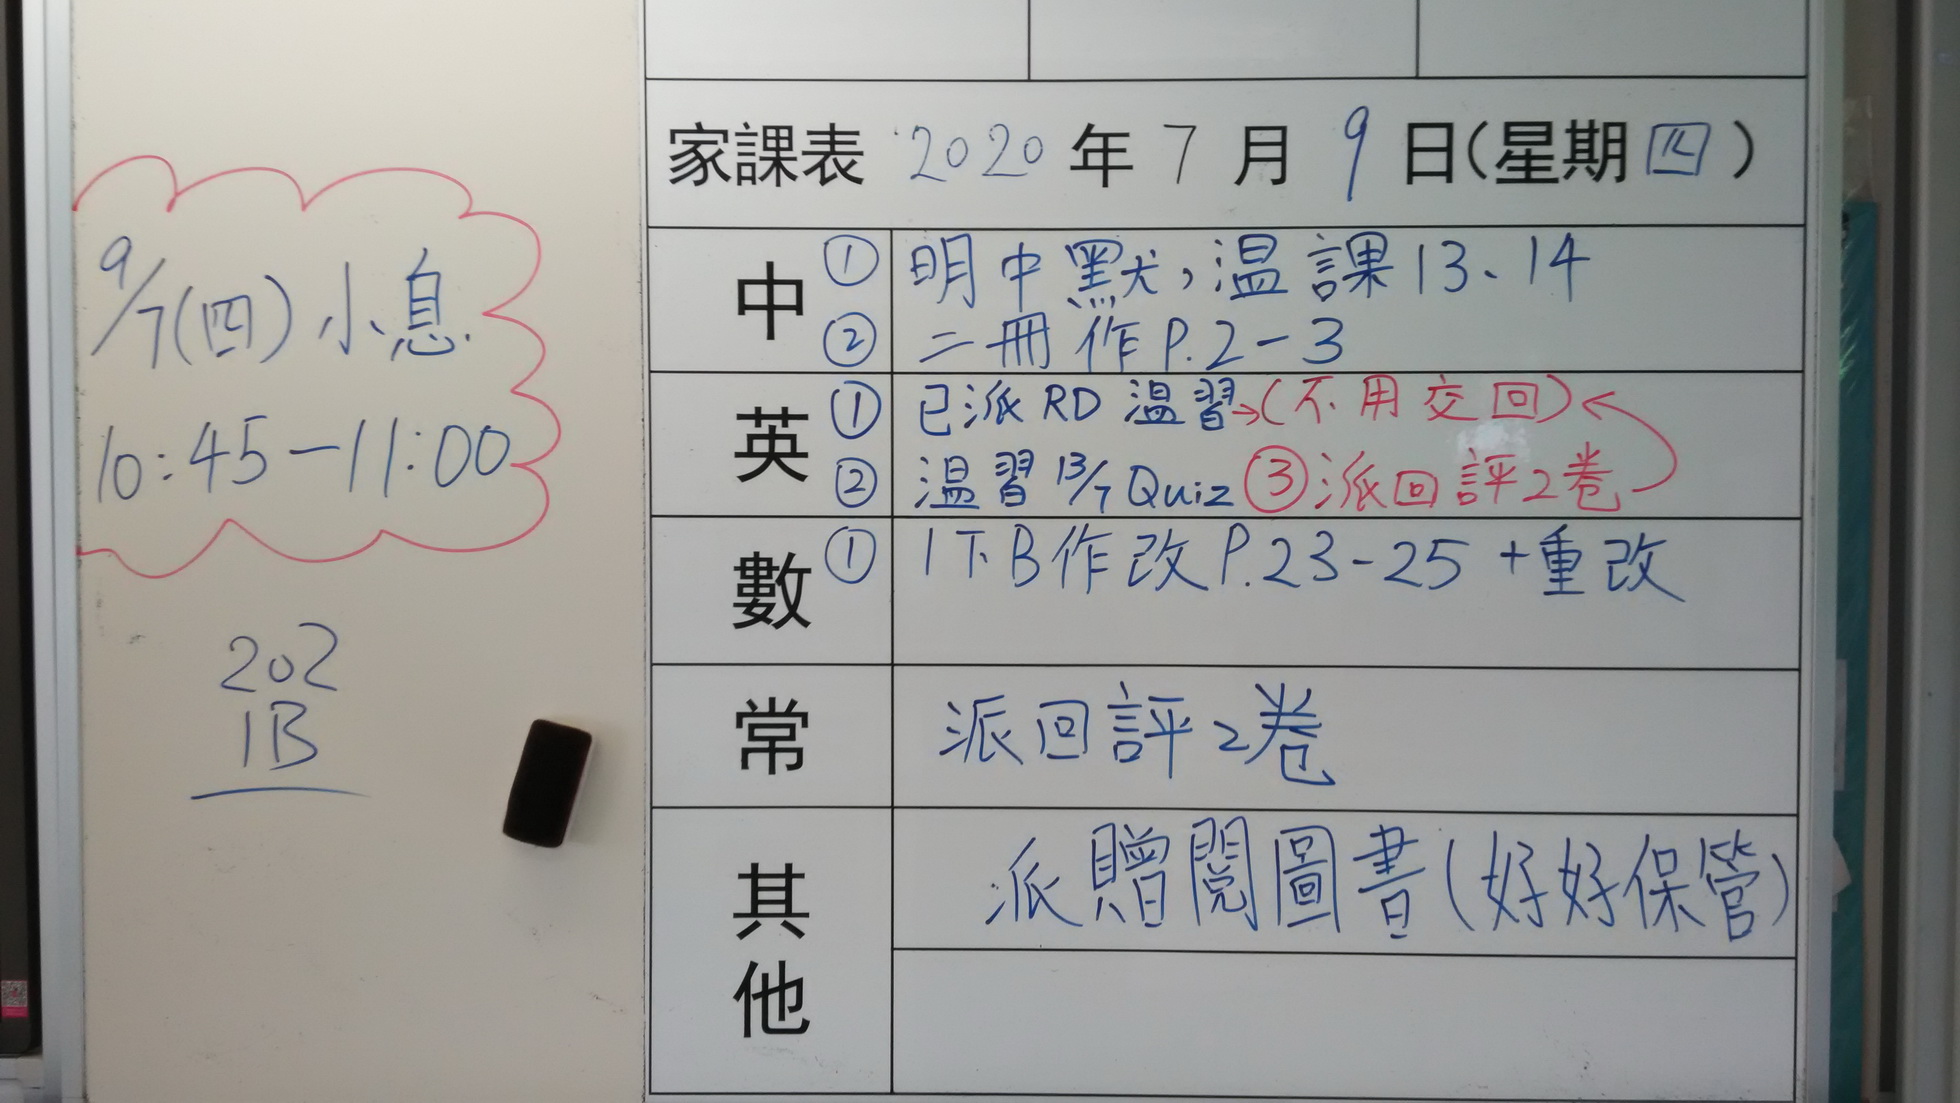 9/7(四)小息
10:45-11:00
202
1B
家課表 2020 年 7 月 9 日(星期四)
中 ① 明中默,温課13、14
② 二冊作P.2-3
英 ① 已派RD温習→(不用交回)
② 温習13/7 Quiz ③派回評2卷
數 ① 1下B作改P.23-25+重改
常 派回評2卷
其他 派贈閱圖書(好好保管)